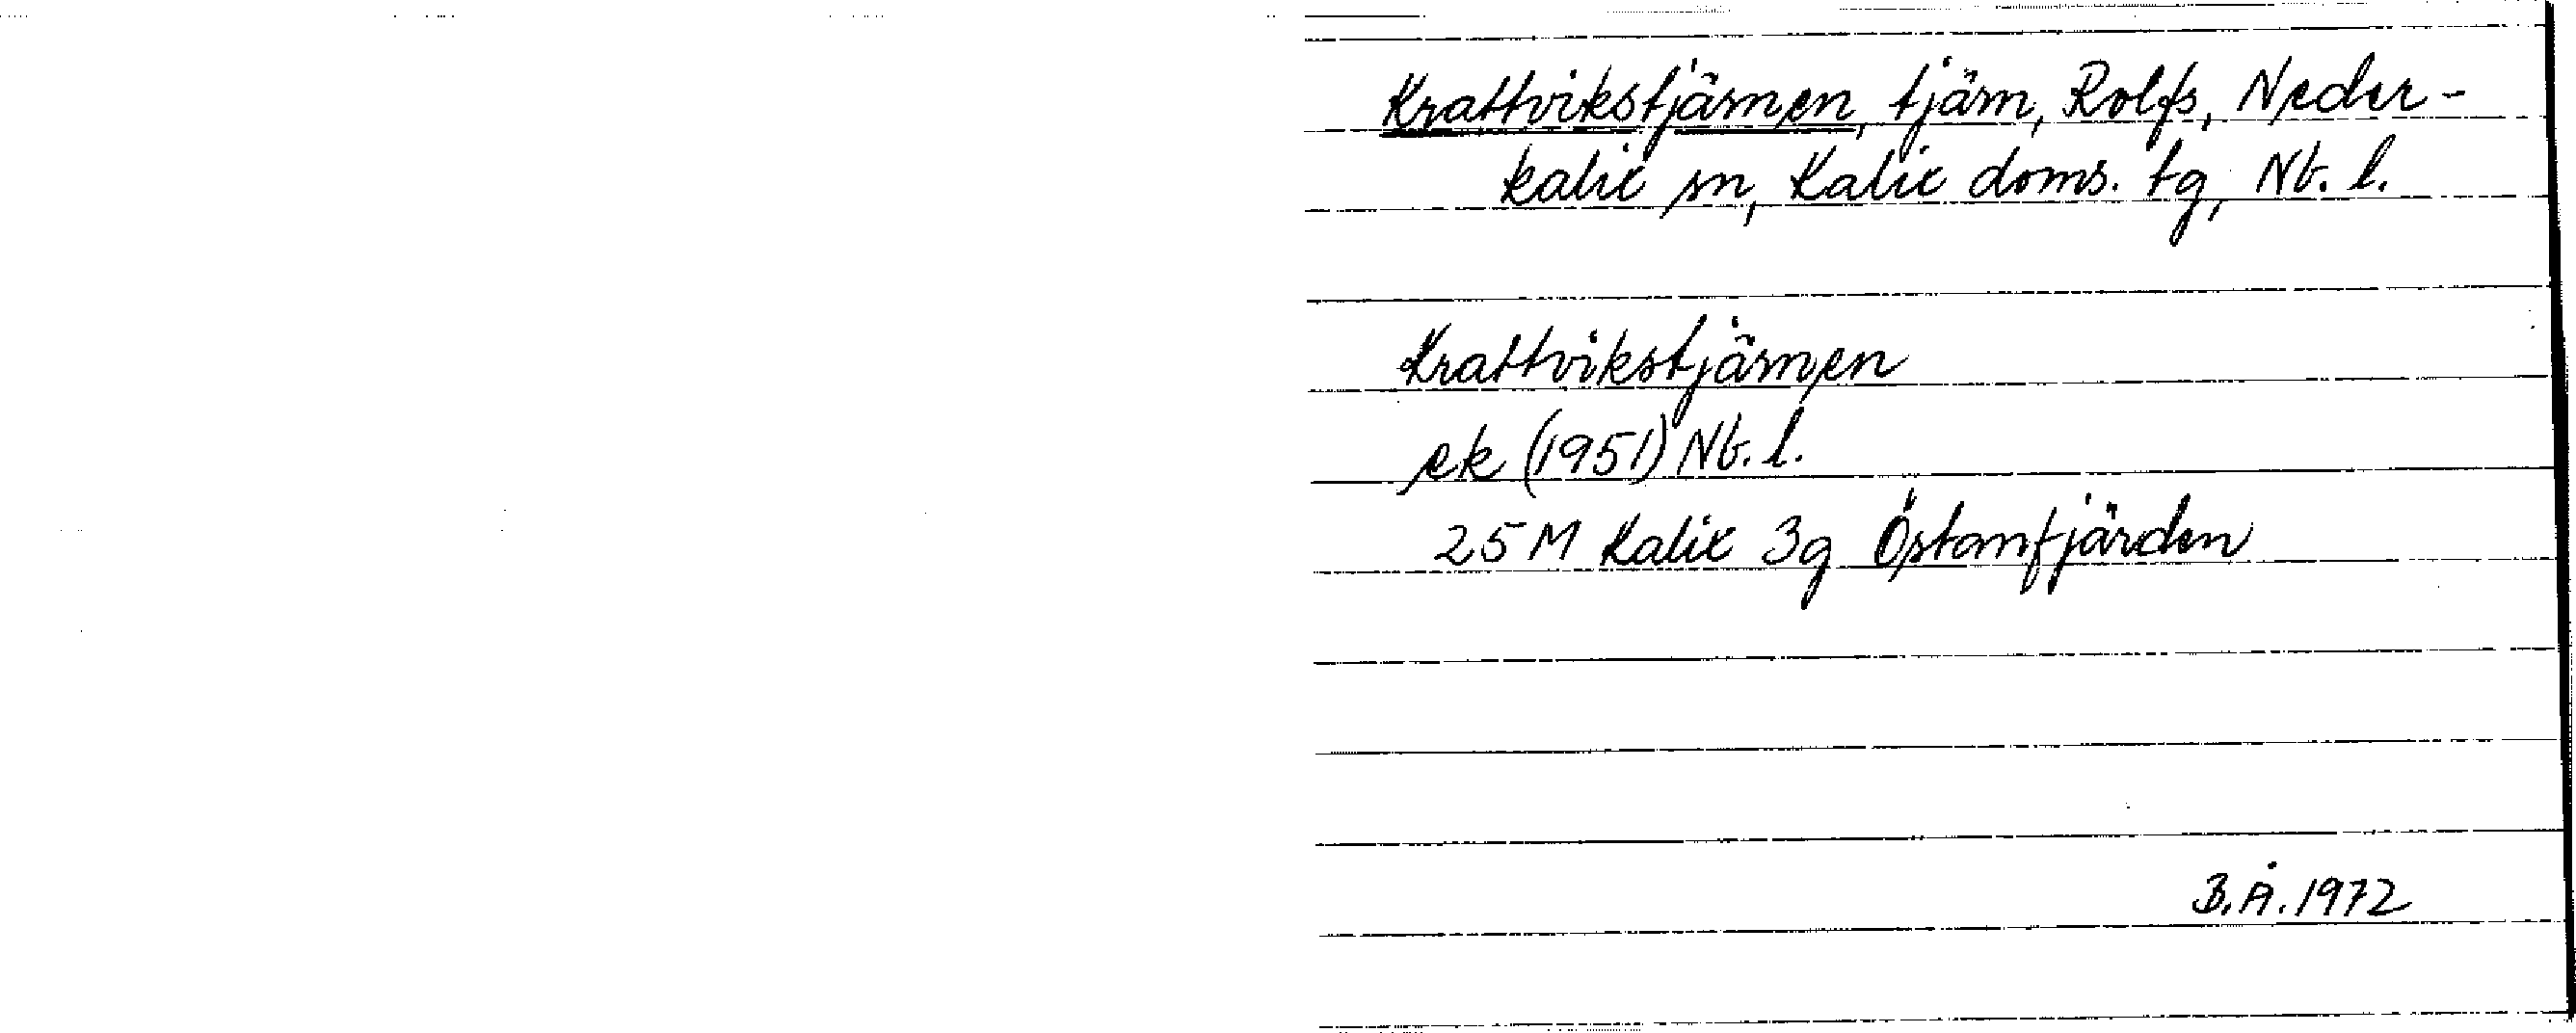 Krattvikstjärnen, tjärn, Rolfs, Neder-
kalix sn, Kalix doms. tg, Nb. l.
Krattvikstjärnen
ek (1951) Nb. l.
25 M Kalix 3g Östanfjärden
B.Å. 1972